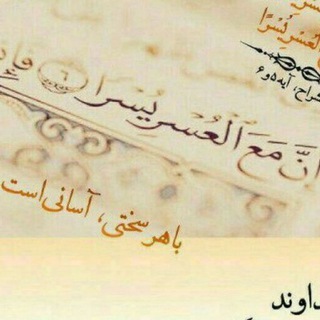 العسر یسرًا
ح، آیه ۵ و ۶
إِنَّ مَعَ الْعُسْرِ يُسْرًا ۶ فَإِذَ
با هر سختی، آسانی است
داوند